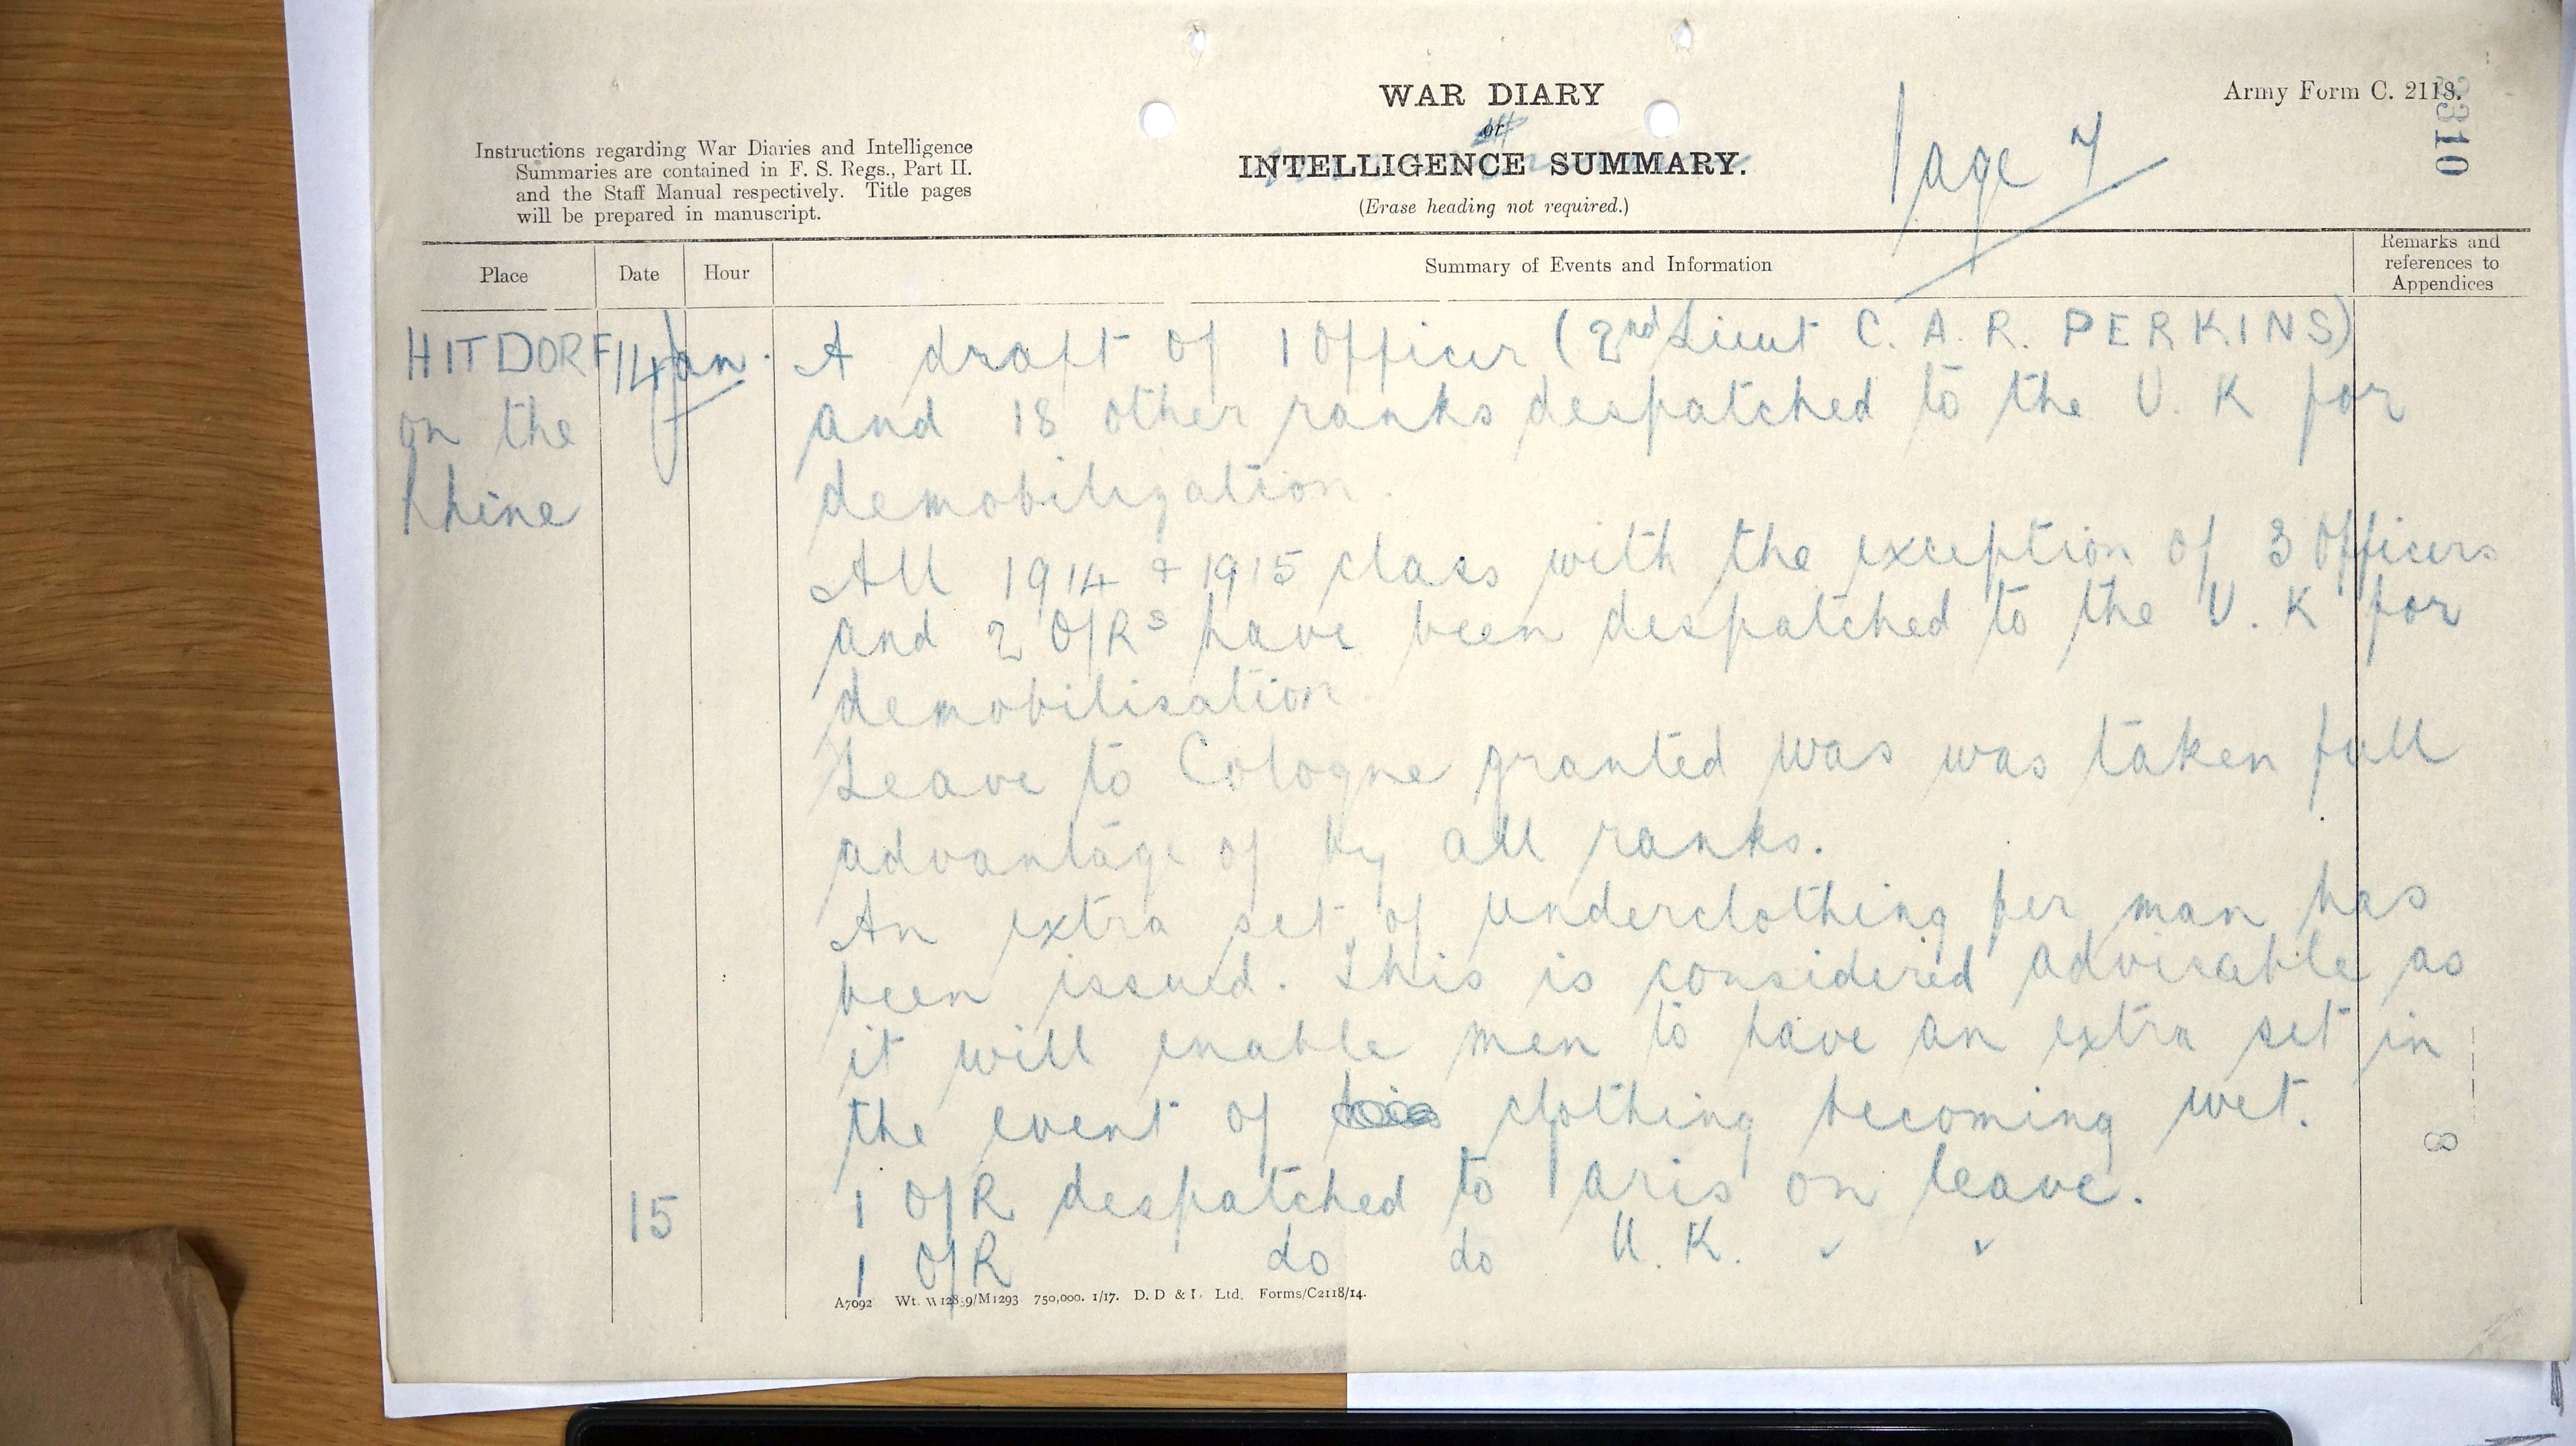 Army Form C. 2118.
3310
WAR DIARY
or
INTELLIGENCE SUMMARY.
(Erase heading not required.)
Page 7
Instructions regarding War Diaries and Intelligence
Summaries are contained in F. S. Regs., Part II.
and the Staff Manual respectively. Title pages
will be prepared in manuscript.
Place Date Hour Summary of Events and Information Remarks and references to Appendices
HITDORF 14 Jan. A draft of 1 Officer (2nd Lieut C. A. R. PERKINS)
on the and 18 other ranks despatched to the U. K for
Rhine demobilization.
All 1914 & 1915 class with the exception of 3 Officers
and 2 O/Rs have been despatched to the U. K for
demobilisation
Leave to Cologne granted was was taken full
advantage of by all ranks.
An extra set of underclothing per man has
been issued. This is considered advisable as
it will enable men to have an extra set in
the event of clothing becoming wet.
15 1 O/R despatched to Paris on leave.
1 O/R do do U. K. " "
8
A7092 Wt. W12859/M1293 750,000. 1/17. D. D & L Ltd. Forms/C2118/14.